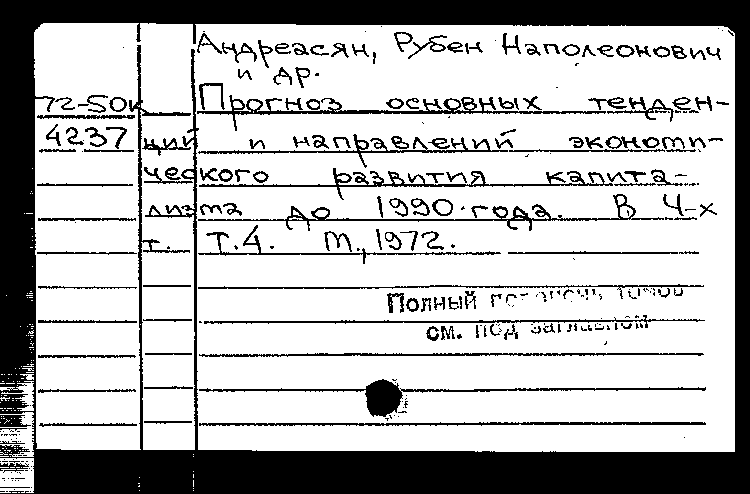 Андреасян, Рубен Наполеонович
и др.
72-50к Прогноз основных тенден-
4237 ций и направлений экономи-
ческого развития капита-
лизма до 1990 года. В 4-х
т. Т.4. М., 1972.
Полный перечень томов
см. под заглавием